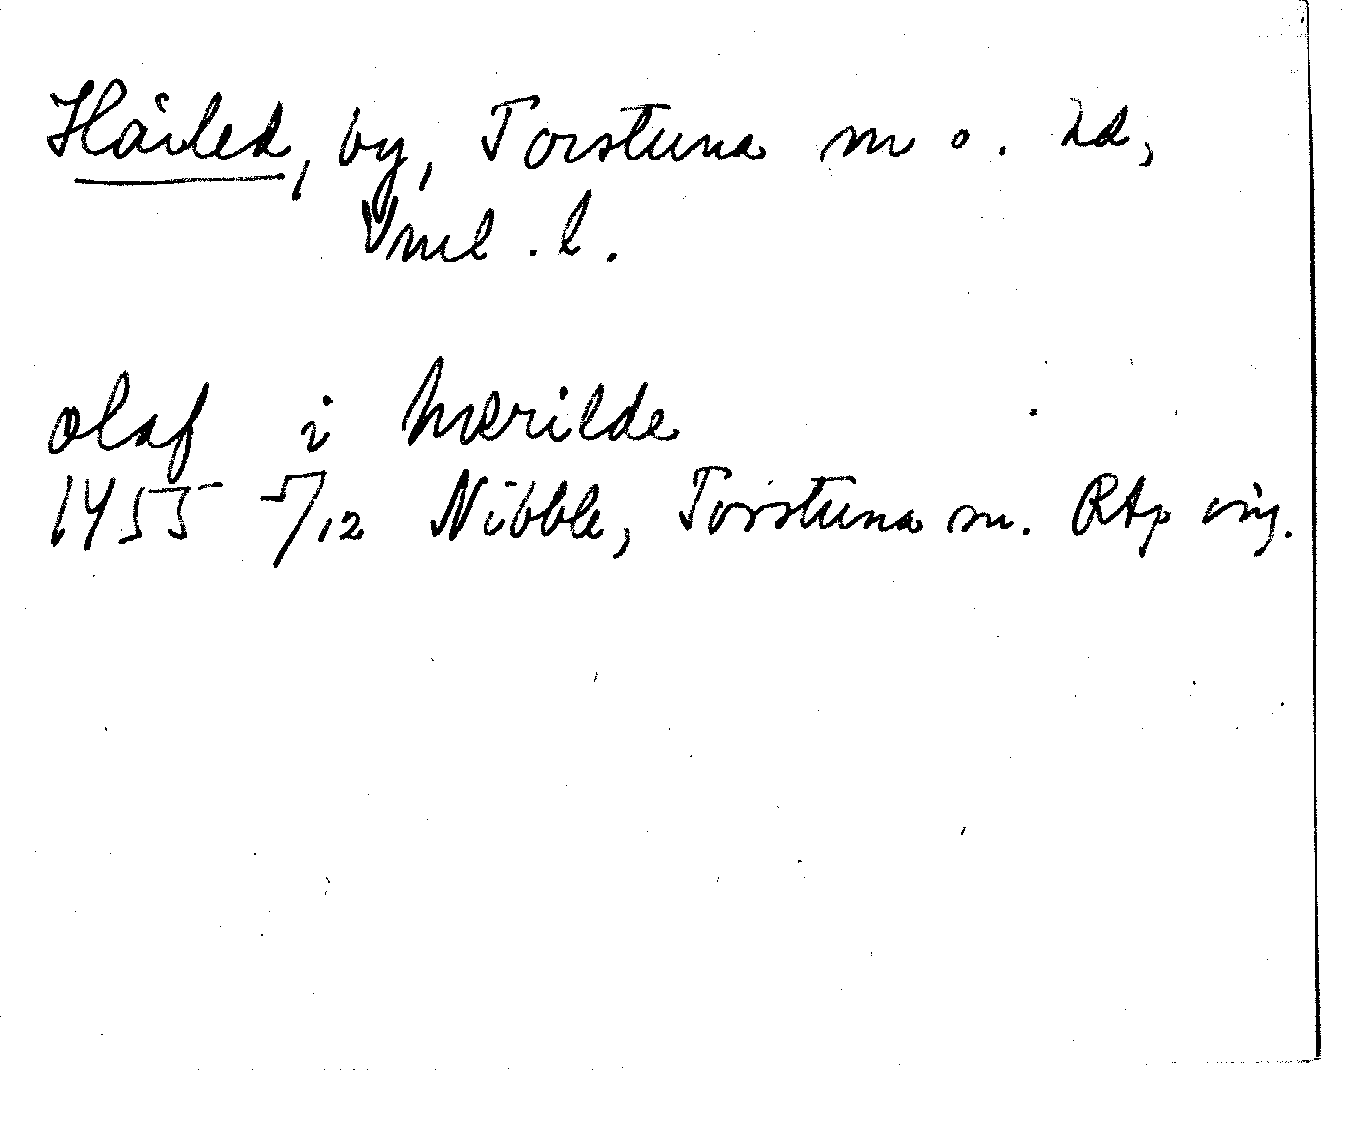 Hårled, by, Torstuna sn o. hd,
Vml. l.
olaf i hærilde
1455 5/12 Nibble, Torstuna sn. RAp orig.